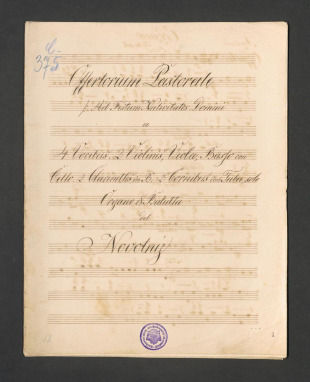 375
Offertorium Pastorale
p. Ad Festum Nativitatis Domini
a
4 Vocibus, 2 Violinis, Viola, Basso con
Cello, 2 Clarinettis in B, 2 Cornibus in F, solo
Organo & Batutta
del
Novotniz